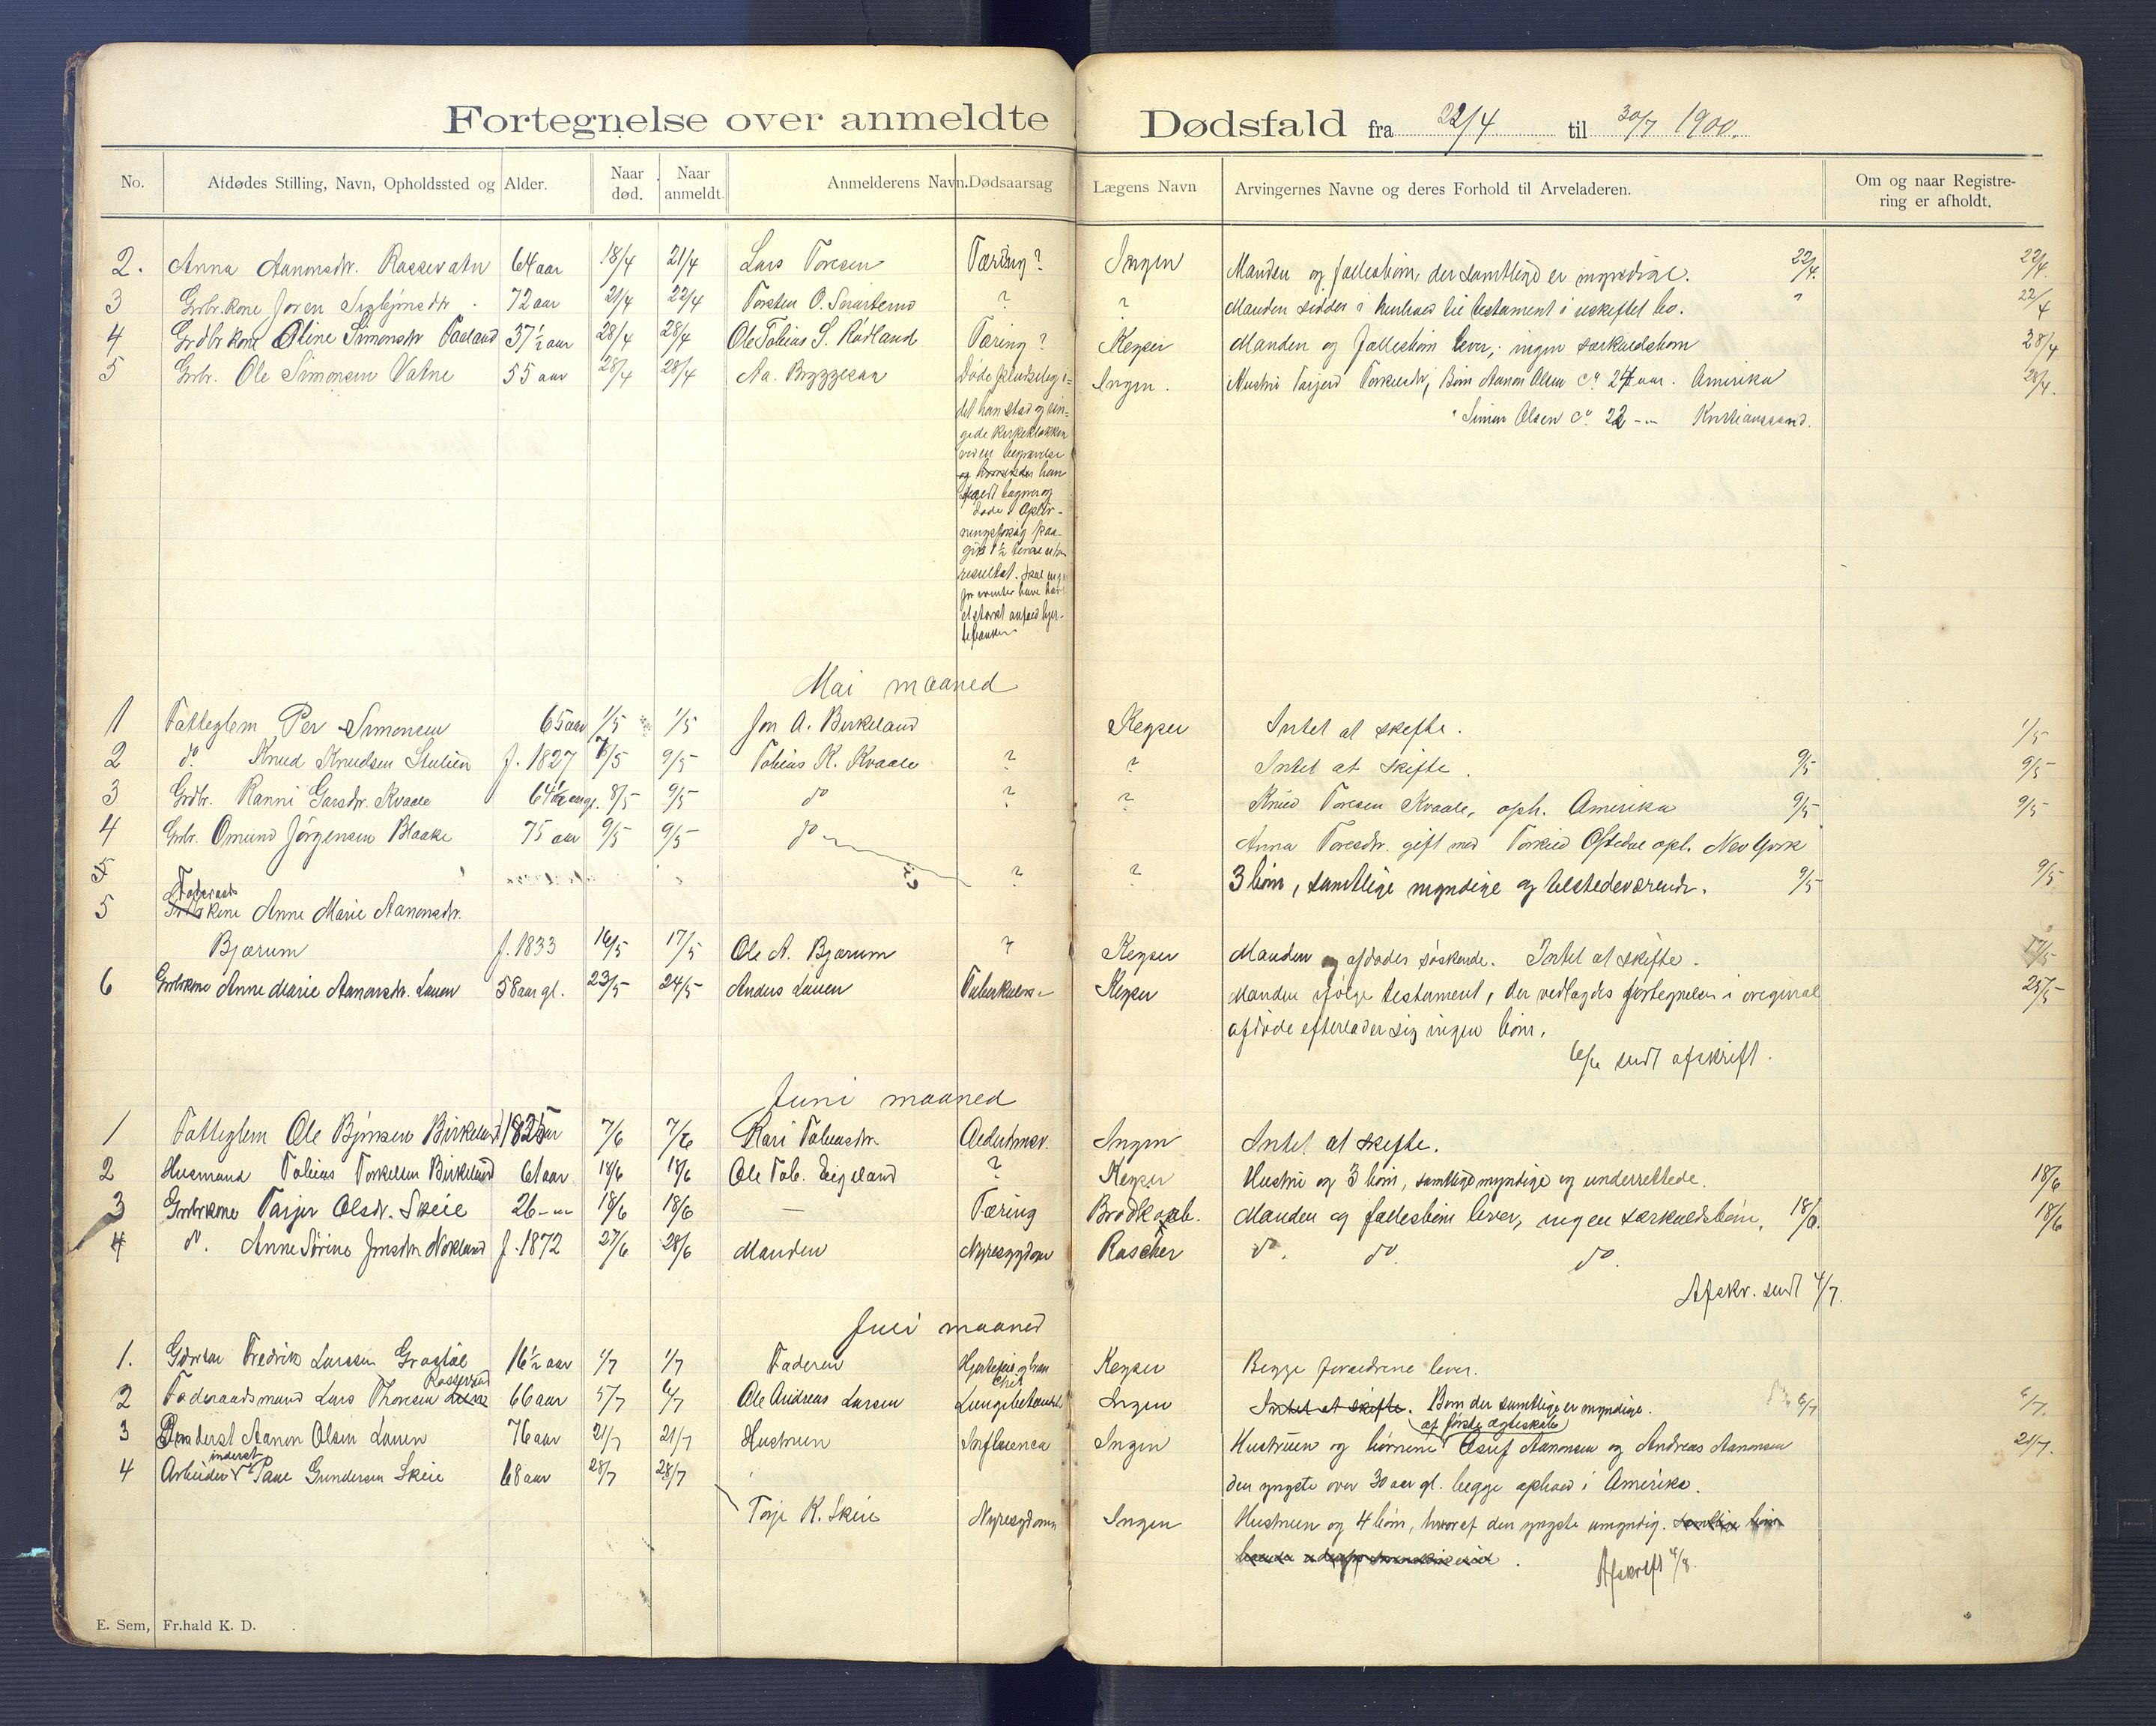 Fortegnelse over anmeldte Dødsfald fra 22/4 til 30/7 1900.
No. Afdødes Stilling, Navn, Opholdssted og Alder. Naar død. Naar anmeldt. Anmelderens Navn. Dødsaarsag Lægens Navn Arvingernes Navne og deres Forhold til Arveladeren. Om og naar Registrering er afholdt.
2. Anna Aanonsdtr. Rossevatn 64 aar 18/4 21/4 Lars Toresen Tæring? Ingen Manden og fællesbørn, der samtlige er myndige. 22/4. 22/4.
3 Grbr.kone Joren 72 aar 21/4 22/4 Torsten O. ? ? Manden sidder i henhold til testament i uskiftet bo. " 22/4
4 Grdbr kone Oline Simonsdtr Faaland 37½ aar 28/4 28/4 Ole Tobias S. Rødland Tæring? Keyser Manden og Fællesbørn lever, ingen særkuldsbørn 28/4
5 Grbr. Ole Simonsen Vatne 55 aar 28/4 28/4 Aa. Bryggesaa Døde pludselig i- Ingen. Hustru Torkelsdtr, Børn Aanon Olsen ca 24 aar. Amerika 28/4.
det han stod og rin-
gede kirkeklokken
ved en begravelse
og han
bagover og
døde. Opliv-
ningsforsøg paa-
gik 1½ time uten
resultat. Skal
for winter have havt
et stærkt anfald hjer-
tebanken
" Simon Olsen ca 22 -"- Kristianssand.
Mai maaned
1 Fattiglem Per Simonsen 65 aar 1/5 1/5 Jon A. Birkeland Keyser Intet at skifte. 1/5
2 do Knud Knudsen Stulien f. 1827 7/5 9/5 Tobias K. Kvaale ? ? Intet at skifte. 9/5 9/5
3 Grdbr. Ranni Kvaale 64½ aar gl. 8/5 9/5 do ? ? Knud Toresen Kvaale, oph. Amerika 9/5 9/5
4 Grbr. Omund Jørgensen Blaake 75 aar 9/5 9/5 do Anna Toresdtr. gift med Torkild Oftedal oph. New York
5 ? ? 3 børn, samtlige myndige og tilstedeværende. 9/5 9/5
Foderaads
5 kone Anne Marie Aanonsdtr.
Bjærum f. 1833 16/5 17/5 Ole A. Bjærum ? Keyser Manden og afdødes søskende. Intet at skifte. 17/5
6 Grbrkone Anne Marie Aanonsdtr. Lauen 58 aar gl. 23/5 24/5 Anders Lauen Tuberkulose Keyser Manden ifølge testament, der vedlagdes fortegnelsen i original 25/5
afdøde efterlader sig ingen børn.
6/6 sendt afskrift.
Juni maaned
1 Fattiglem Ole Bjørnsen Birkeland 1825 7/6 7/6 Kari Tobiasdtr. Alderdomssv. Ingen Intet at skifte.
2 Husmand Tobias Torkelsen Birkeland 61 aar 18/6 18/6 Ole Tob. Eigeland ? Keyser Hustru og 3 børn, samtlige myndige og underrettede. 18/6
3 Grbrkone Tarjer Olsdr. Skeie 26 -"- 18/6 18/6 — Tæring Brodkorb. Manden og fællesbørn lever, ingen særkuldsbørn, 18/6. 18/6
4 do. Anne Sørine Jonsdtr Nokland f. 1872 27/6 28/6 Manden Nyresygdom Rascher do. do. do.
Afskr. sendt 4/7.
Juli maaned
1. Fredrik Larssen 16½ aar 1/7 1/7 Faderen Keyser Begge forældrene lever.
2 Foderaadsmand Lars Thoresen Rossevand 66 aar 5/7 6/7 Ole Andreas Larsen Lungebetændelse Ingen Intet at skifte. Børn der samtlige er myndige. 6/7 6/7.
af første ægteskab
3 Inderst Aanon Olsen Lauen 76 aar 21/7 21/7 Hustruen Influenca Ingen Hustruen og børnene Asuf Aanonsen og Andreas Aanonsen 21/7.
inderst
4 Arbeider Paul Gundersen Skeie 68 aar 28/7 28/7 den yngste over 30 aar gl. begge ophold i Amerika.
Torje K. Skeie Nyresygdom Ingen Hustruen og 4 børn, hvoraf den yngste umyndig.
Afskrift 4/8.
E. Sem, Fr.hald K. D.